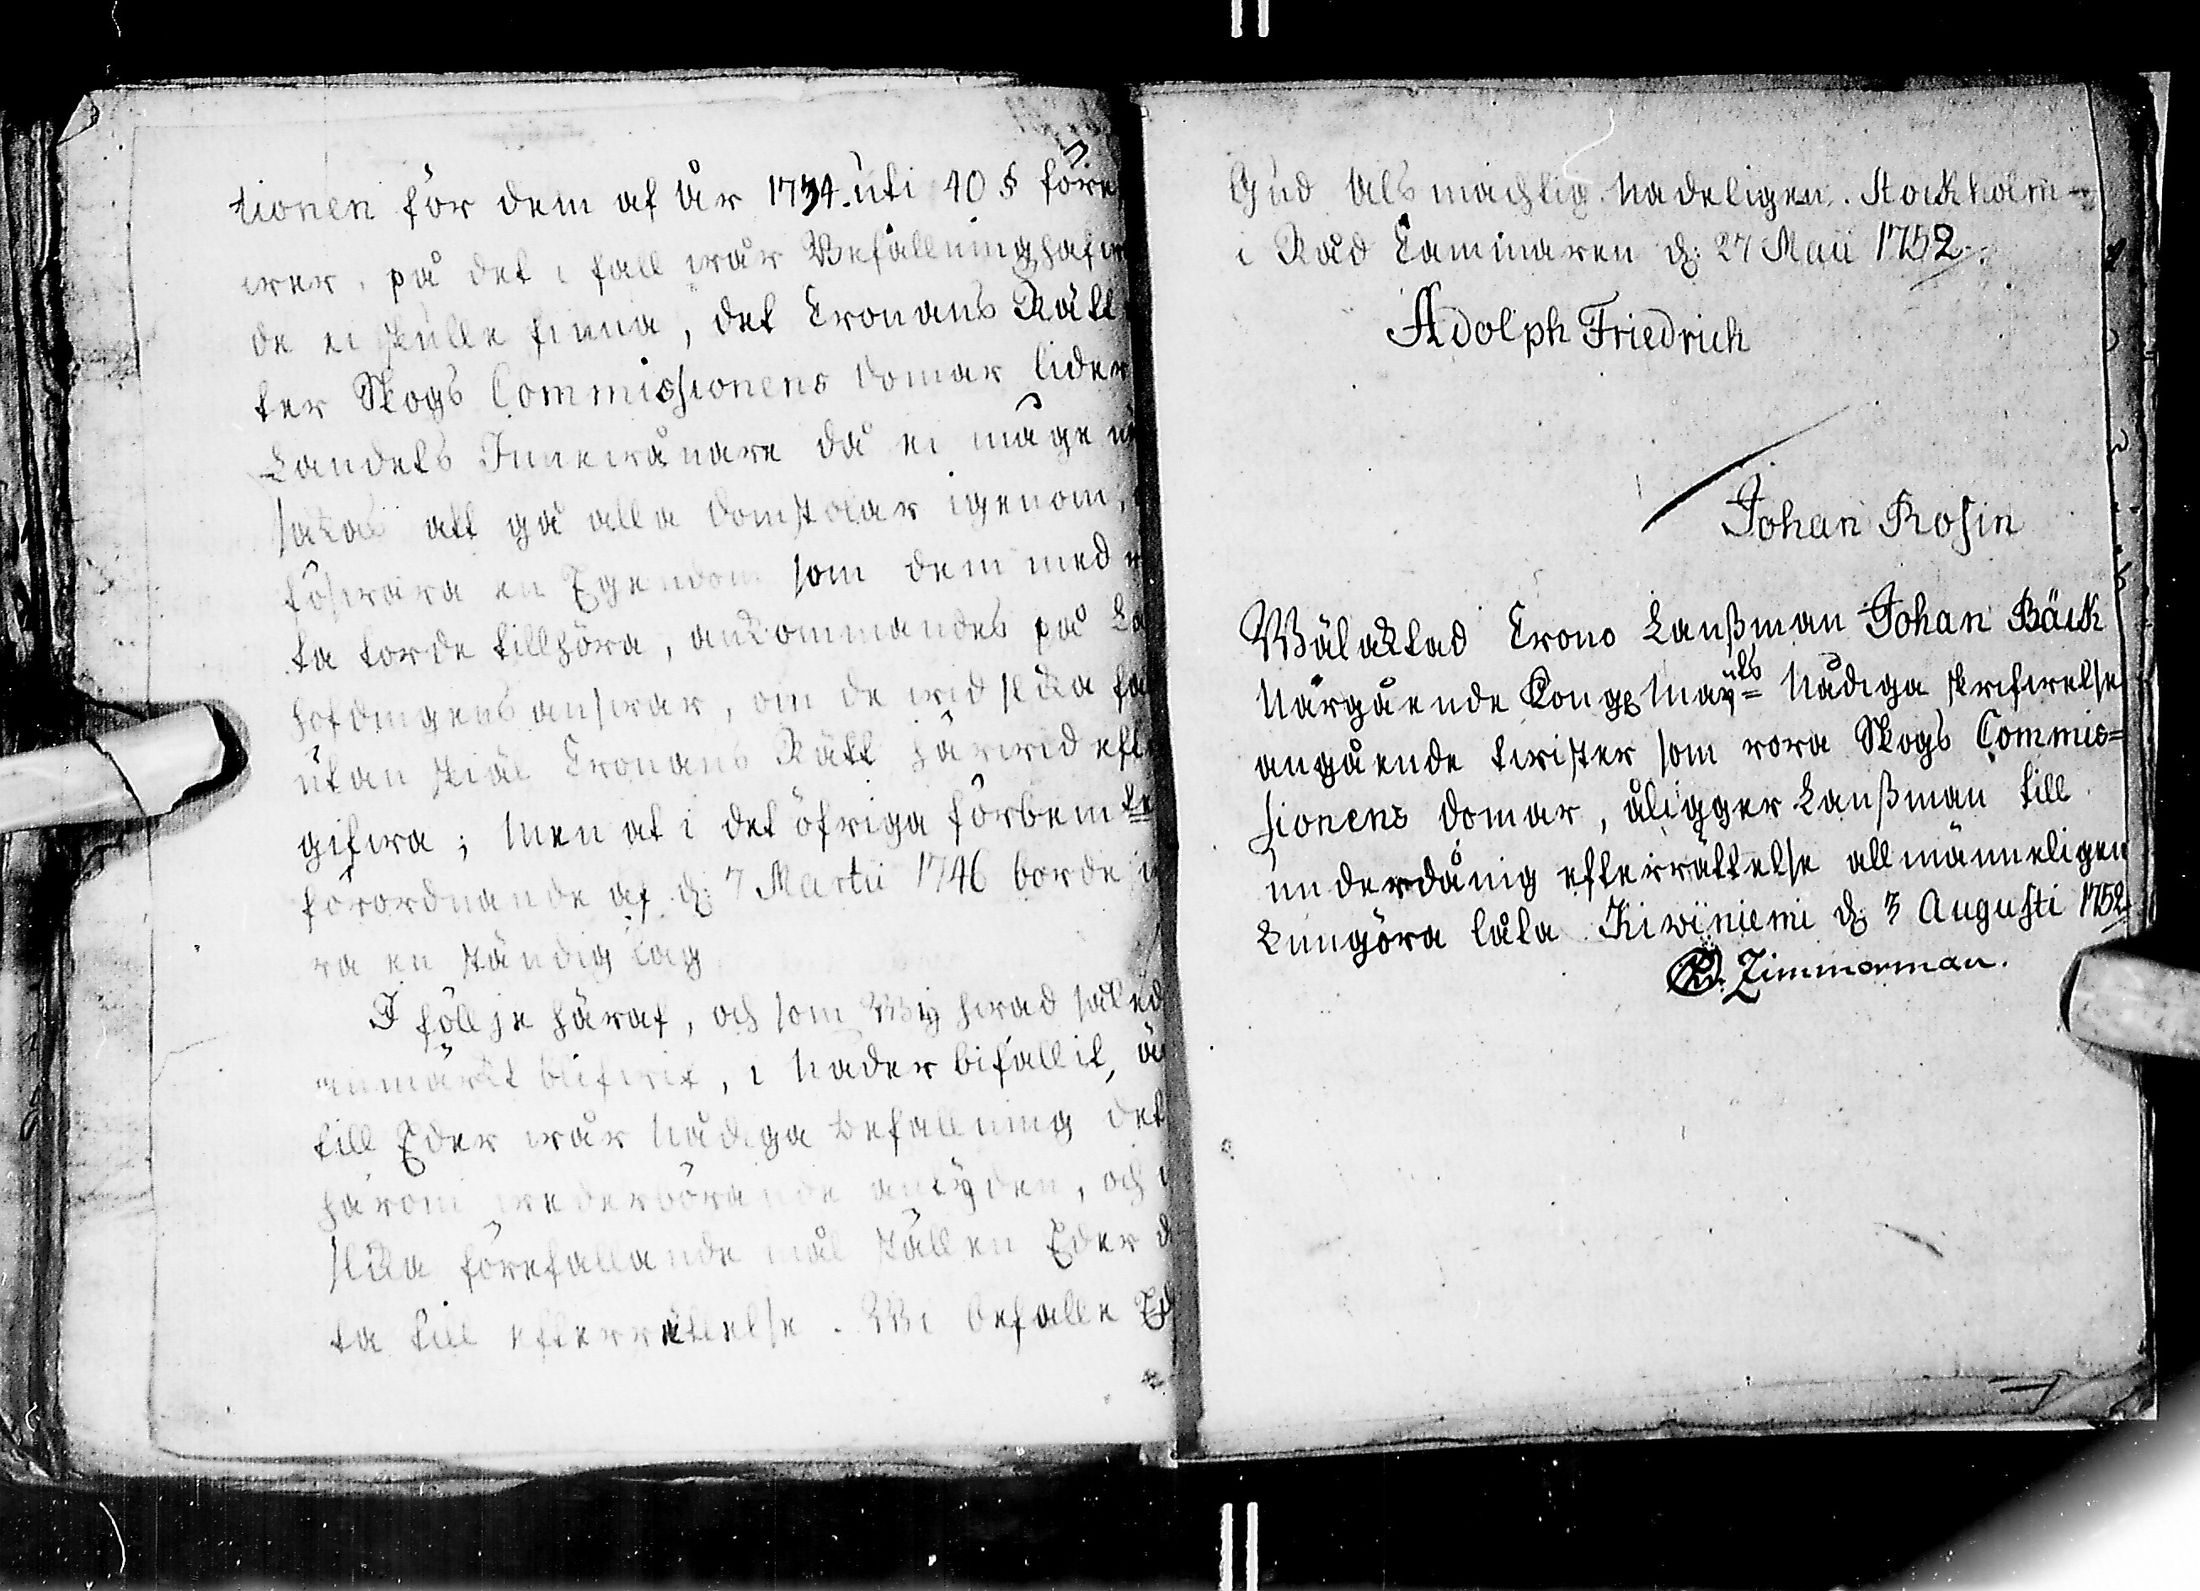 tionen för dem af år 1734. uti 40 § före
wer, på det i fall wår Befallninghafw
de ei skulle finna, det Cronans Rätt
ter Skogs Commissionens domar lider
Landets Innewånare då ei måge
sakas att gå alla domstolar igenom,
förswara en Egendom som dem med
ta torde tillhöra, ankommandes på La
hofdingens answar, om de wid slika fa
utan skiäl Cronans Rätt härwid eft
gifwa; Men at i det öfriga förbemte
förordnande af d: 7 Martii 1746 borde
ra en ständig lag
I föllje häraf, och som Wij hwad såled
anmärkt blifwit, i Nåder bifallit, är
till Eder wår Nådiga befallning det
härom wederbörande antyden, och
slika förefallande mål ställen Eder d
ta till efterrättelse. Wi befalle Ed
Gud Alsmächtig Nadeligen. Stockholm
i Råd Cammaren d: 27 Maii 1752.
Adolph Friedrich
Johan Rosin
Wälaktad Crono Lanßman Johan Bäck
Närgående Kongl May:ts Nådiga skrifwelse
angående twister som rora Skogs Commis=
sionens domar, åligger Lanßman till
underdånig efterrättelse allmänneligen
Kungöra låta Kiwiniemi d: 3 Augusti 1752
Zimmerman.